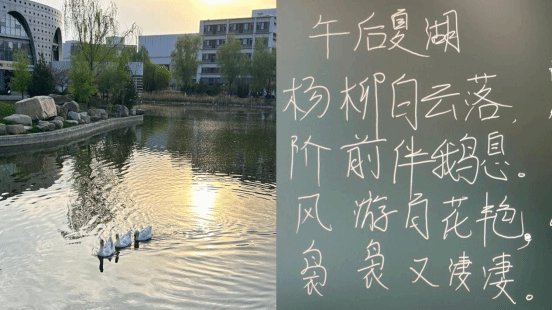 午后夏湖
杨柳白云落,
阶前伴鹅息。
风游百花艳,
袅袅又凄凄。